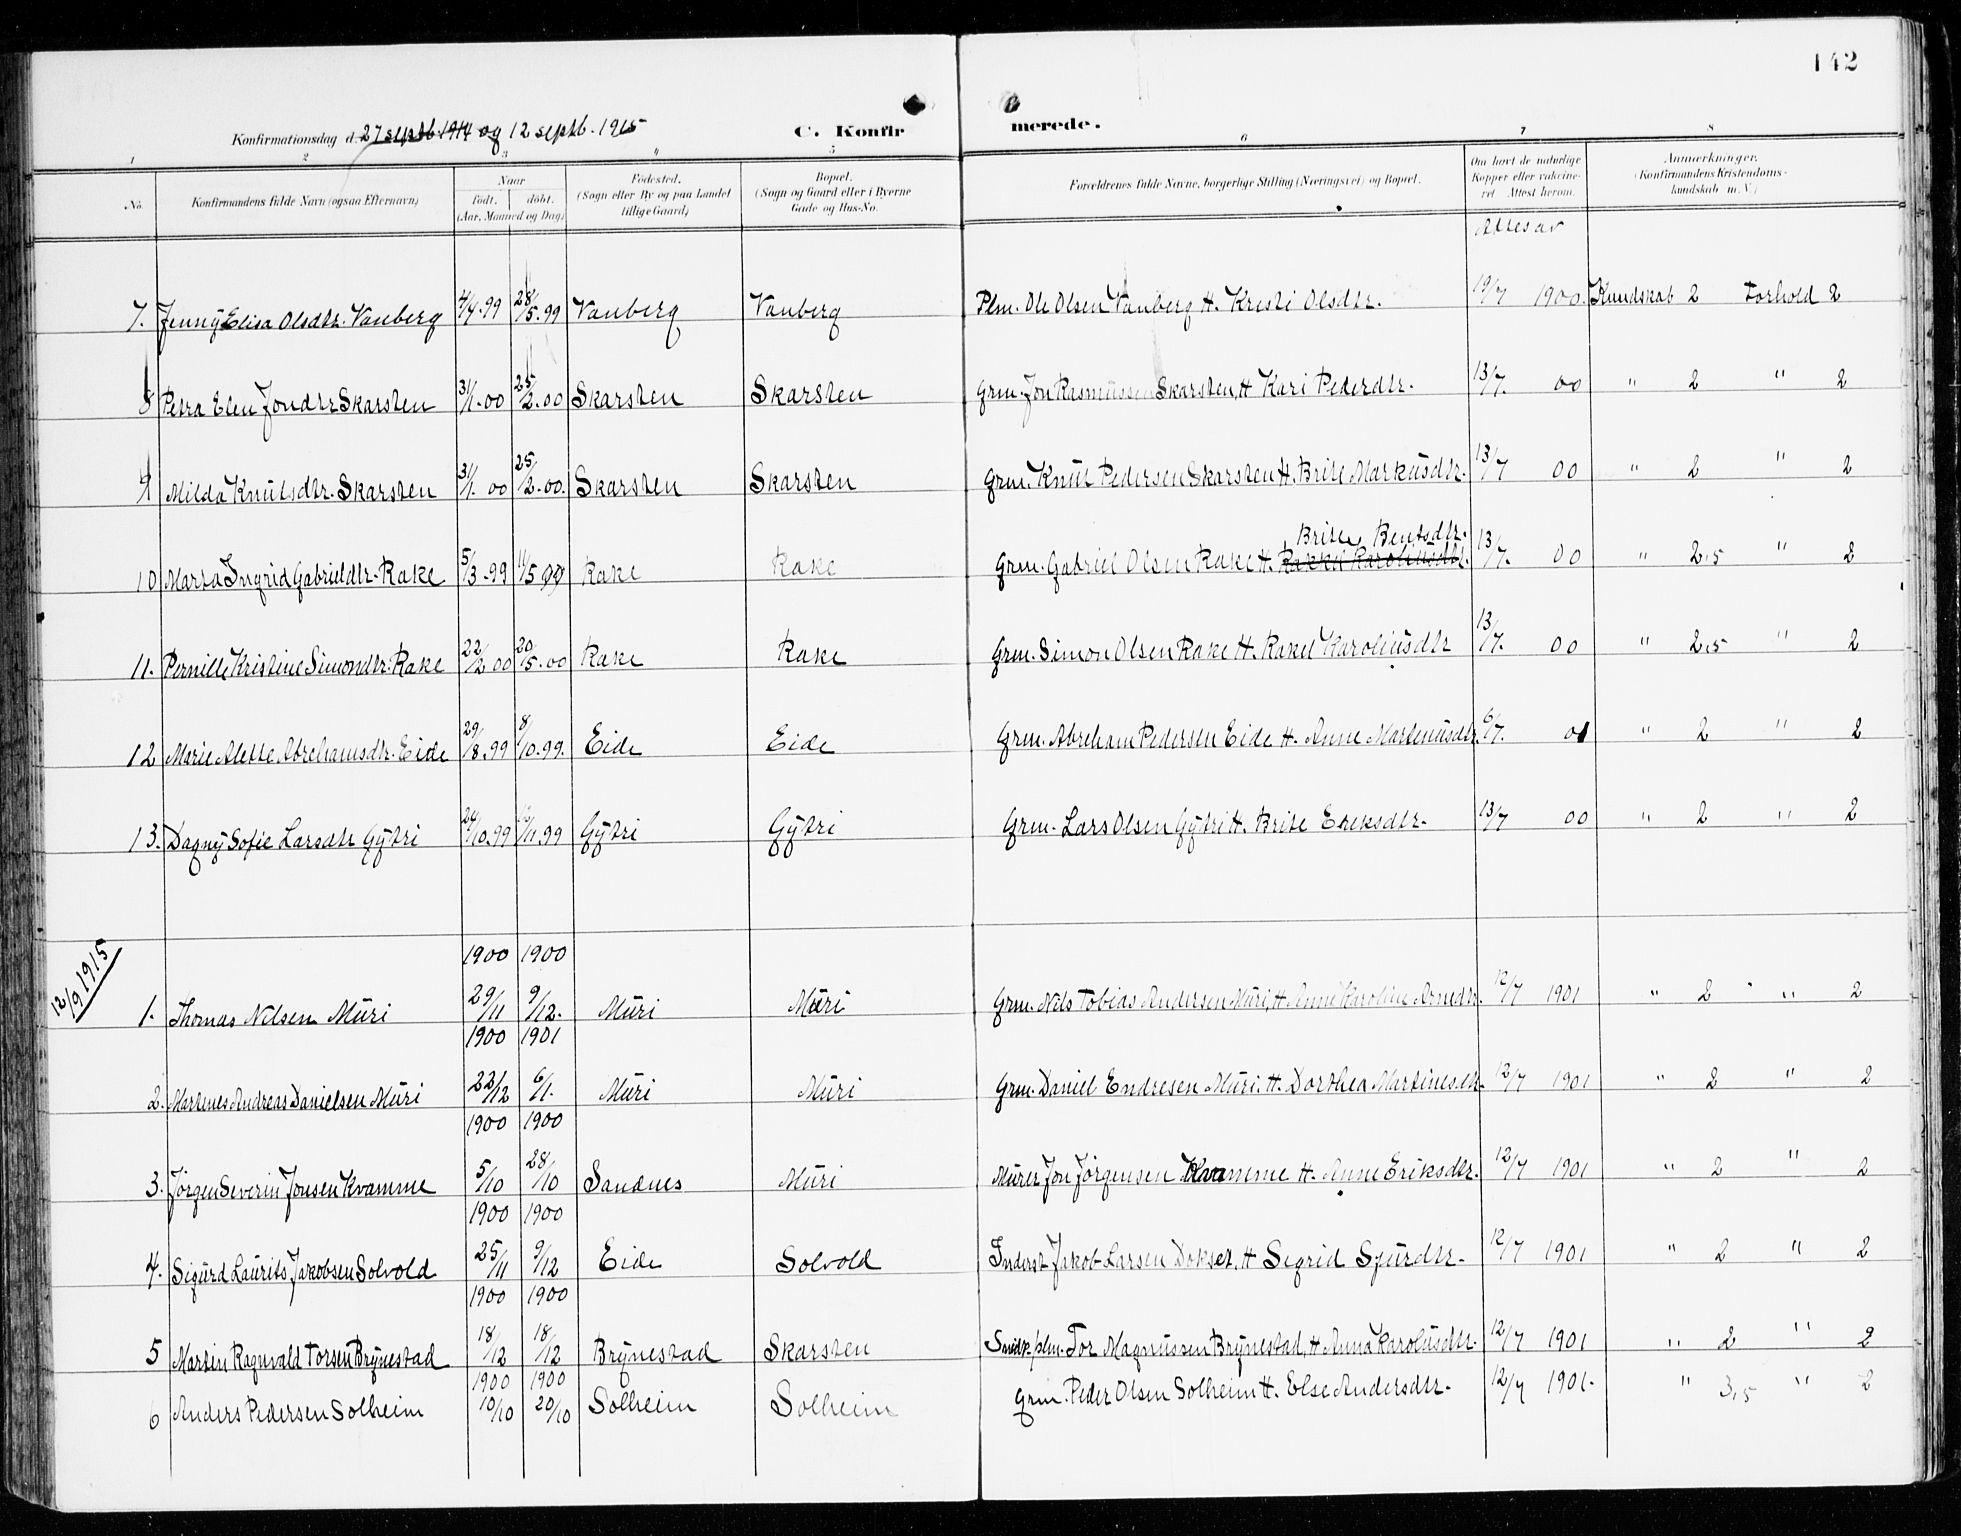 142
Konfirmationsdag d. 27 septb. 1914 og 12 septb. 1915 C. Konfirmerede.
1 2 3 4 5 6 7 8
No. Konfirmandens fulde Navn (ogsaa Efternavn) Naar født. døbt. (Aar, Maaned og Dag) Fødested. (Sogn eller By og paa Landet tillige Gaard) Bopæl. (Sogn og Gaard eller i Byerne Gade og Hus-No. Forældrenes fulde Navne, borgerlige Stilling (Næringsvei) og Bopæl. Om havt de naturlige Kopper eller vaksineret Attest herom. Anmærkninger. (Konfirmandens Kristendomskundskab m. V.)
7. Jenny Elisa Olsdtr. Vanberg 4/4.99 28/5.99 Vanberg Vanberg Plm. Ole Olsen Vanberg H. Kristi Olsdtr. 19/7 1900. Kundskab 2 Forhold 2
8 Petra Elen Jondtr Skarsten 31/1.00 25/2.00 Skarsten Skarsten Grm. Jon Rasmussen Skarsten, H Kari Pederdtr. 13/7. 00 " 2 " 2
9 Milda Knutsdtr. Skarsten 31/1.00 25/2.00. Skarsten Skarsten Grm. Knut Pedersen Skarsten H. Brite Markusdtr. 13/7 00 " 2 " 2
Brite Bentsdtr.
10 Marta Ingrid Gabrieldtr. Rake 5/3.99 11/5 99 Rake Rake Grm. Gabriel Olsen Rake H. Rakel Karolinsdtr. 13/7. 00 " 2,5 " 2
11. Pernille Kristine Simondtr. Rake 22/2.00 20/5.00 Rake Rake Grm. Simon Olsen Rake H. Rakel Karolinsdtr 13/7. 00 " 2,5 " 2
12 Marie Alette Abrehamsdtr. Eide 29/8.99 8/10.99. Eide Eide Grm. Abreham Pedersen Eide H. Anne Martinusdtr. 6/7. 01 " 2 " 2
13. Dagny Sofie Larsdtr Gytri /10.99 /11.99 Gytri Gytri Grm. Lars Olsen Gytri H. Brite Eriksdtr. 13/7 00 " 2 " 2
12/9 1915
1900 1900
1. Thomas Nilsen Muri 29/11 9/12. Muri Muri Grm. Nils Tobias Andersen Muri, H. Anne Karoline Arnedtr. 12/7 1901 " 2 " 2
1900 1901
2. Martines Andreas Danielsen Muri 22/12 6/1. Muri Muri Grm. Daniel Endresen Muri. H. Dorthea Martinesdtr. 12/7 1901 " 2 " 2
1900 1900
3. Jørgen Severin Jonsen Kvamme 5/10 28/10 Sandnes Muri Murer Jon Jørgensen Kvamme H. Anne Eriksdtr. 12/7 1901 " 2 " 2
1900 1900
4. Sigurd Laurits Jakobsen Solvold 25/11 9/12 Eide Solvold Inderst Jakob Larsen Dokset, H Segrid Sjurdtr. 12/7 1901 " 2 " 2
1900 1900
5 Martin Ragnvald Torsen Brynestad 18/12 18/12 Brynestad Skarsten Snedk/plm. Tor Magnussen Brynestad, H Anna Karolusdtr. 12/7 1901 " 2 " 2
1900 1900
6 Anders Pedersen Solheim 10/10 20/10 Solheim Solheim Grm. Peder Olsen Solheim H. Else Andersdtr. 12/7 1901. " 3,5 " 2